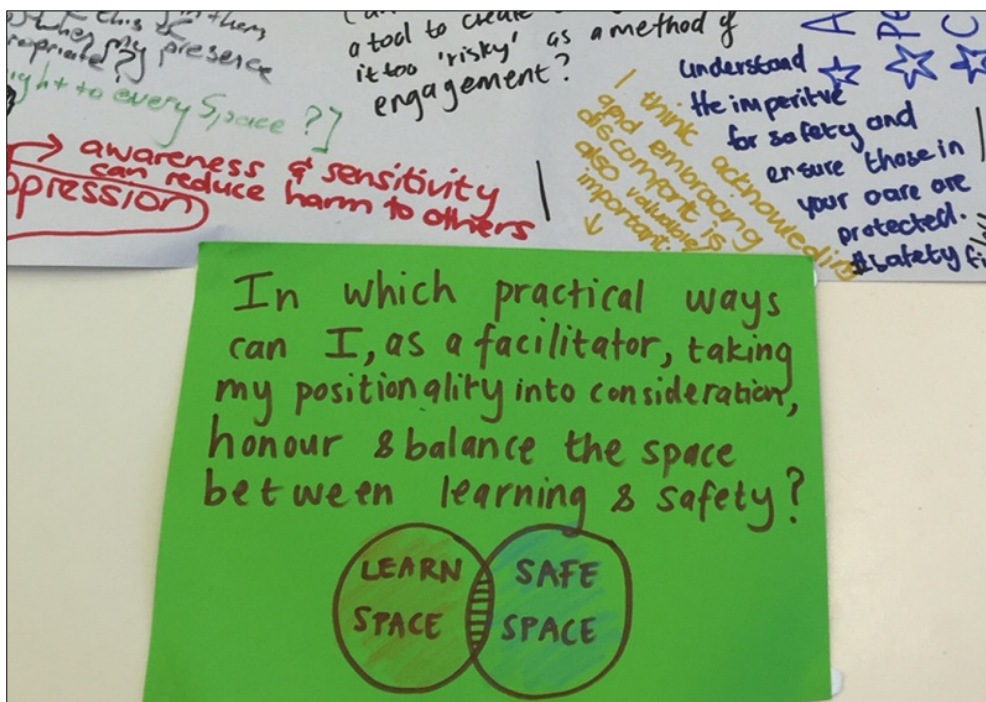 this in them,
when my presence
ropriate?
ght to every Space?]
awareness & sensitivity
can reduce harm to others
pression
a tool to create
it too 'risky' as a method of
engagement?
I think acknowledging
and embracing
discomfort is
also valuable/
important.
understand
the imperitve
for safety and
ensure those in
your care are
protected.
#safety fi
A
Pe
C
In which practical ways
can I, as a facilitator, taking
my positionality into consideration,
honour & balance the space
between learning & safety?
LEARN
SPACE
SAFE
SPACE